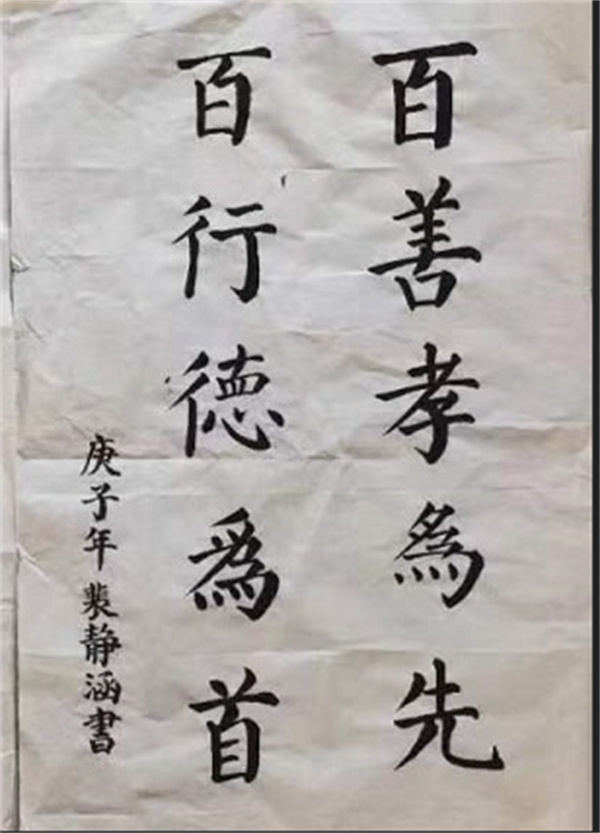 百善孝為先
百行德爲首
庚子年裴静涵書